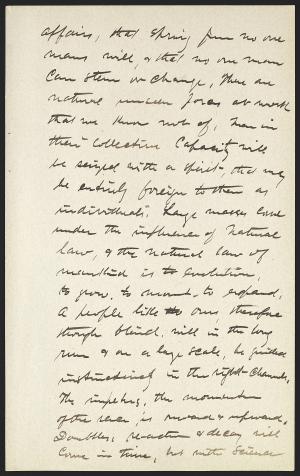 affairs, that spring from no one
mans will, & that no one man
can stem or change, There are
natural unseen forces at work
that we know not of, Men in
their collective capacity will
be seized with a spirit, that may
be entirely foreign to them as
individuals. Large masses come
under the influence of natural
law, & the natural law of
mankind is to evolution,
to grow, to mount, to expand,
A people like ours, therefore
though blind, will in the long
run & on a large scale, be guided
instinctively in the right channels,
The impetus, the momentum
of the race, is onward & upward,
Doubtless, reaction & decay will
come in time, but with Science